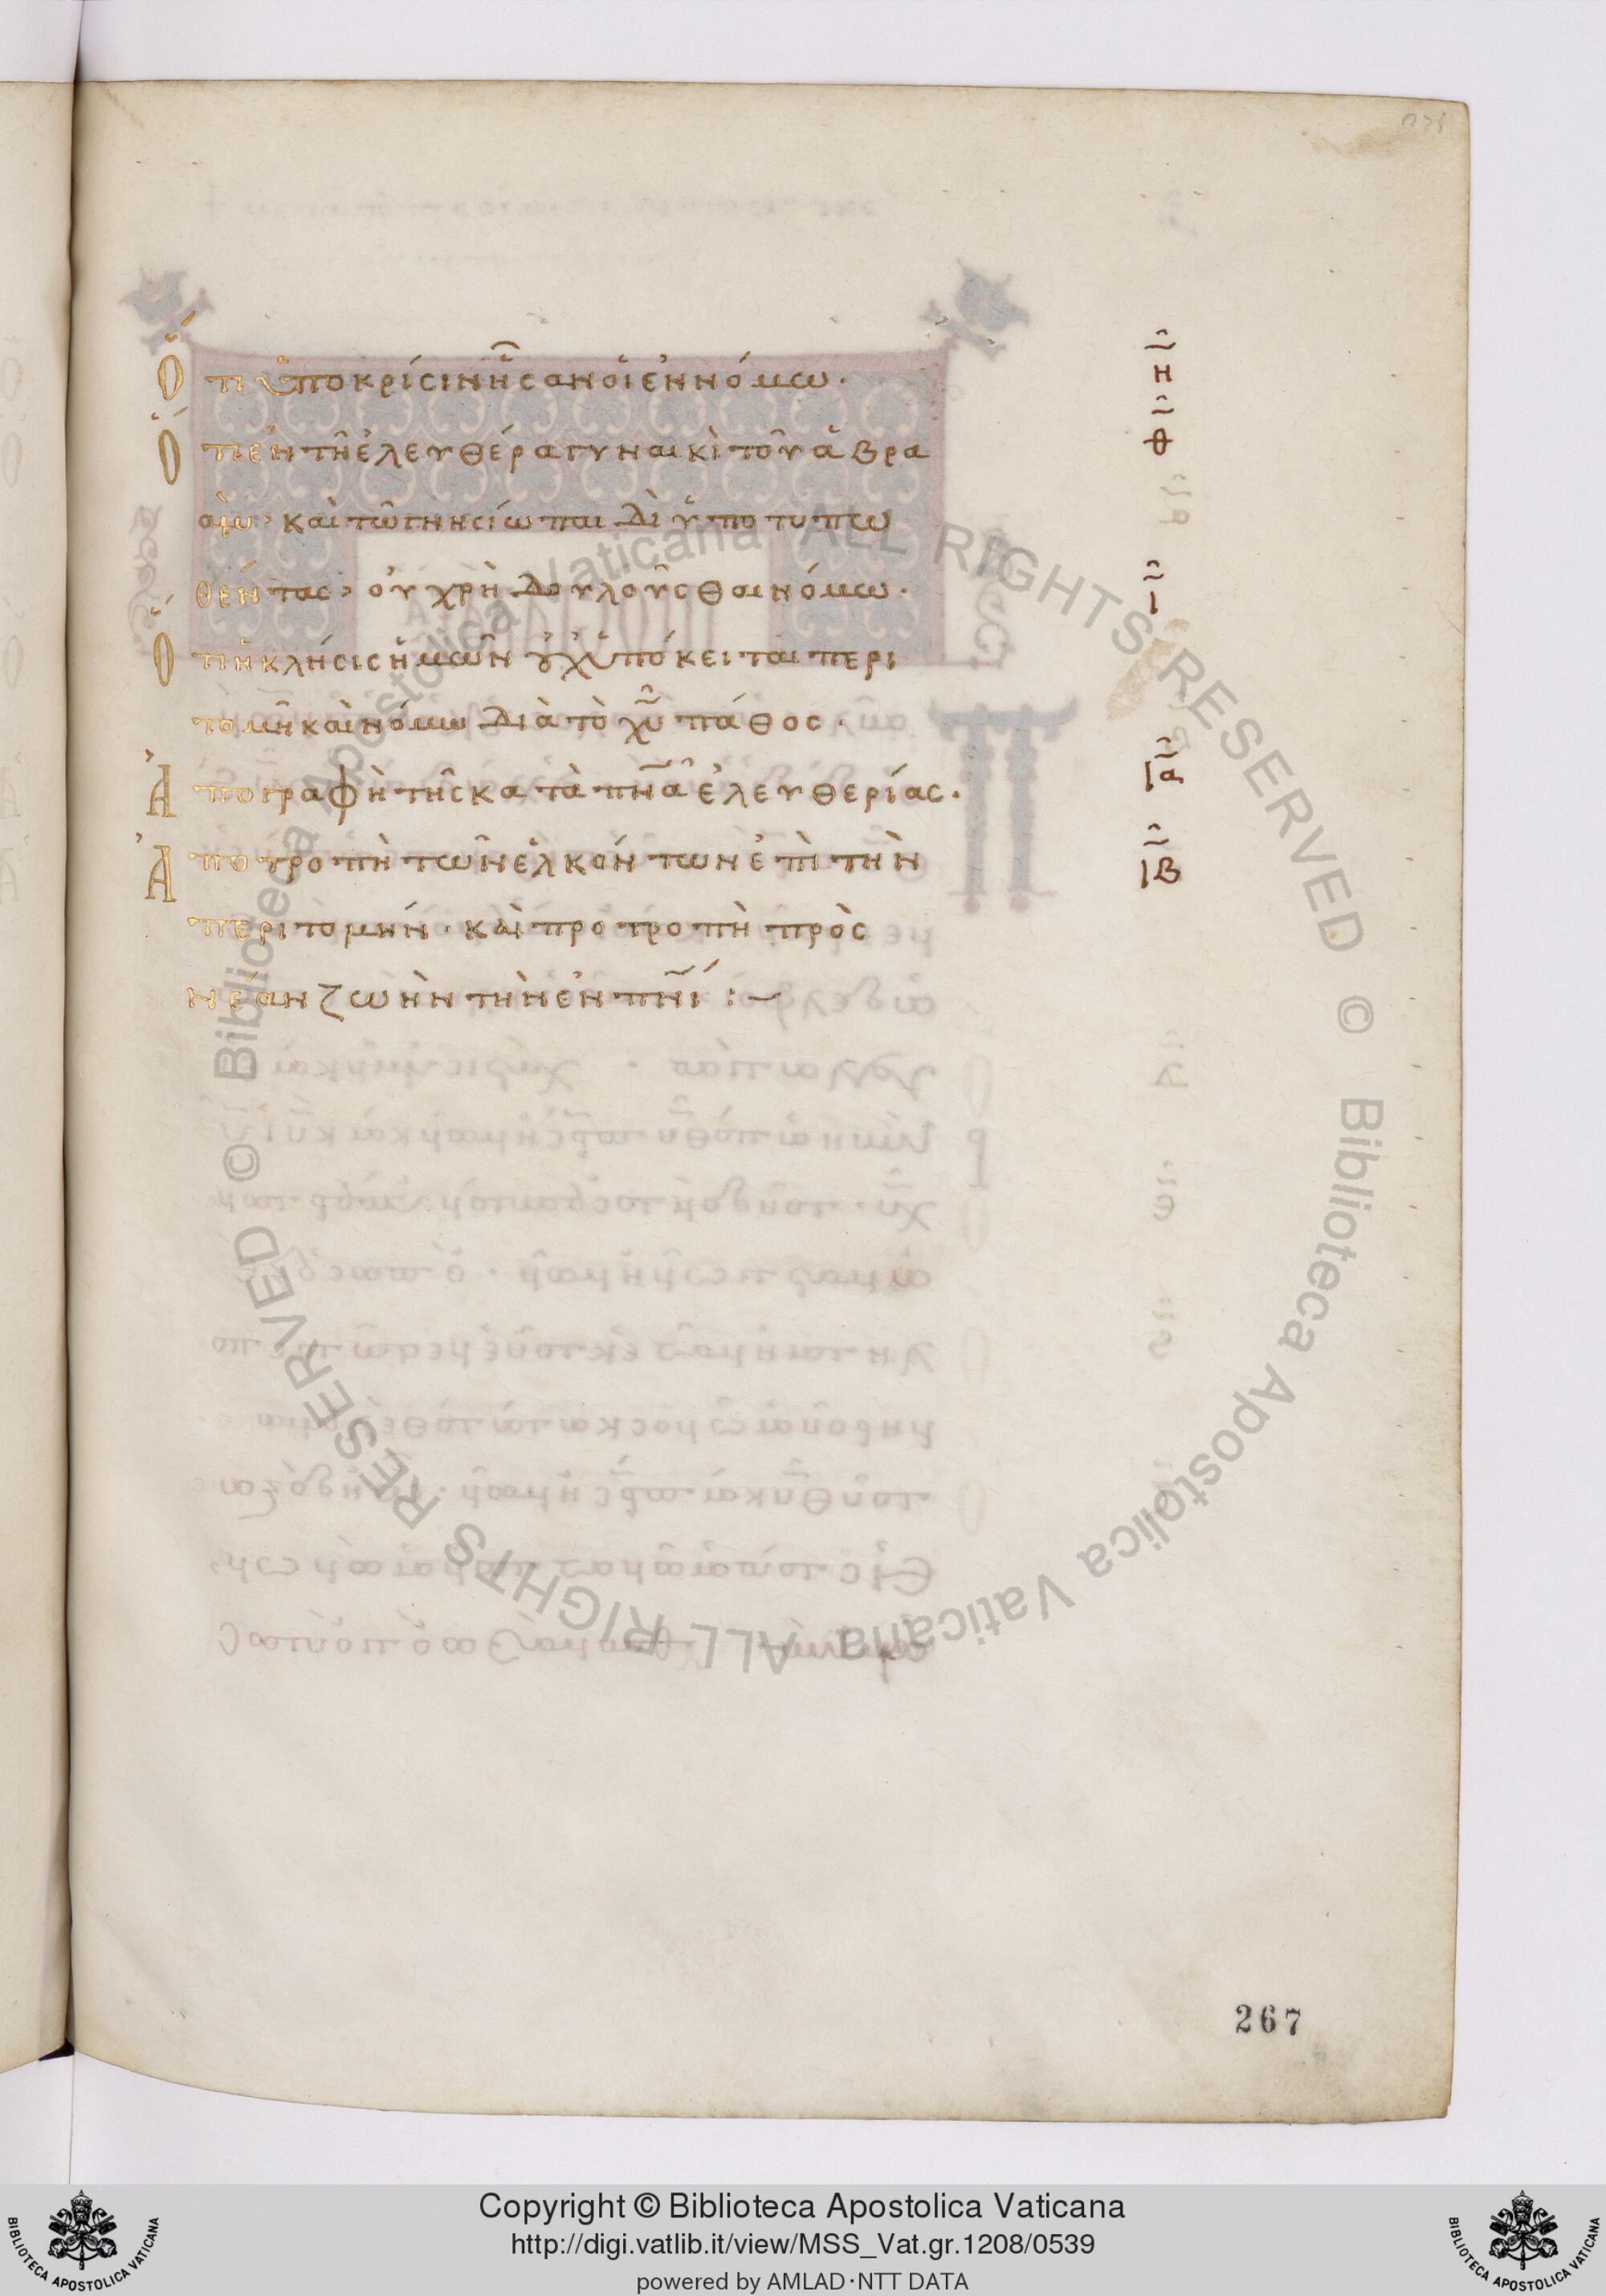 Ὅτι ὑπόκρισιν ἦσαν οἱ ἐν νόμω·
Ὅτι ἐν τῇ ἐλευθέρα γυναικὶ τοῦ ἀβρα
ὰμ, καὶ τῶ γνησίω παιδὶ ὑποτυπω
θέντας, οὐ χρὴ δουλοῦσθαι νόμω·
Ὅτι ἡ κλῆσις ἡμῶν οὐχ ὑπόκειται περι
τομῆ καὶ νόμω διὰ τὸ χῦ πάθος·
Ἀπογραφὴ τῆς κατὰ πνᾶ ἐλευθερίας·
Ἀποτροπὴ τῶν ἑλκόντων ἐπὶ τὴν
περιτομήν· καὶ προτροπὴ πρὸς
νέαν ζωὴν τὴν ἐν πνί :~
η
θ
ι
ια
ιβ
267
© Biblioteca Apostolica Vaticana ALL RIGHTS RESERVED © Biblioteca Apostolica Vaticana ALL RIGHTS RESERVED
Copyright © Biblioteca Apostolica Vaticana
http://digi.vatlib.it/view/MSS_Vat.gr.1208/0539
powered by AMLAD·NTT DATA
BIBLIOTECA APOSTOLICA VATICANA
BIBLIOTECA APOSTOLICA VATICANA